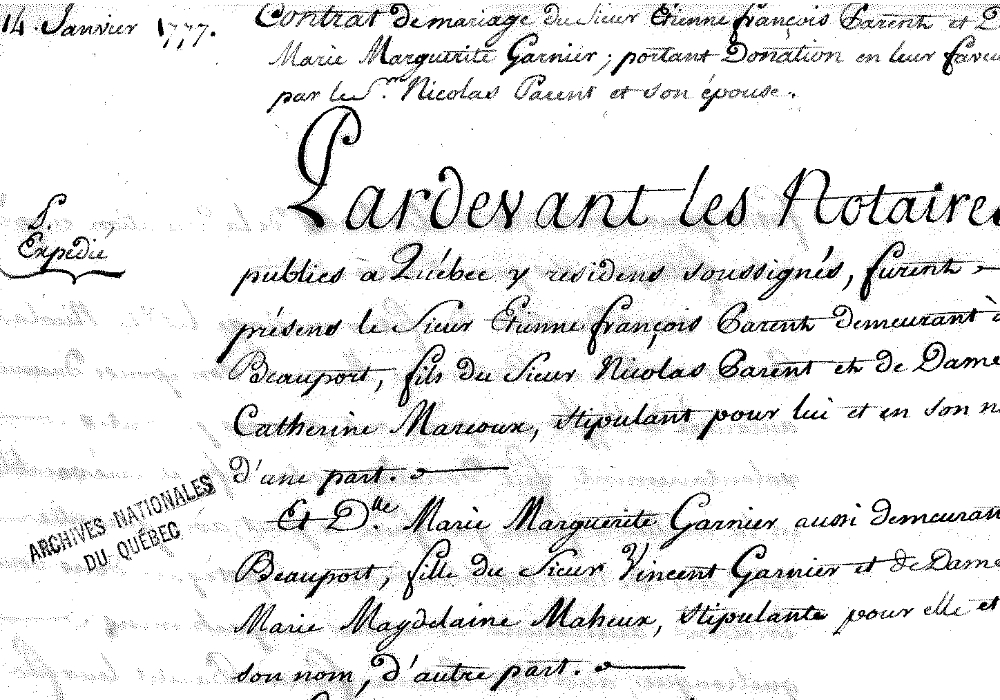 14 Janvier 1777.
Contrat de mariage du Sieur Etienne françois Parent et D
Marie Marguerite Garnier; portant Donation en leur faveu
par le S.r Nicolas Parent et son épouse.
Pardevant les Notaires
publics a Québec y residens soussignés, furent
présens le Sieur Etienne françois Parent demeurant à
Beauport, fils du Sieur Nicolas Parent et de Dame
Catherine Marcoux, stipulant pour lui et en son n
d'une part.
Et D.lle Marie Marguerite Garnier aussi demeuran
Beauport, fille du Sieur Vincent Garnier et de Dame
Marie Magdelaine Maheux, stipulante pour elle et
son nom, d'autre part.
Expédié
ARCHIVES NATIONALES
DU QUÉBEC